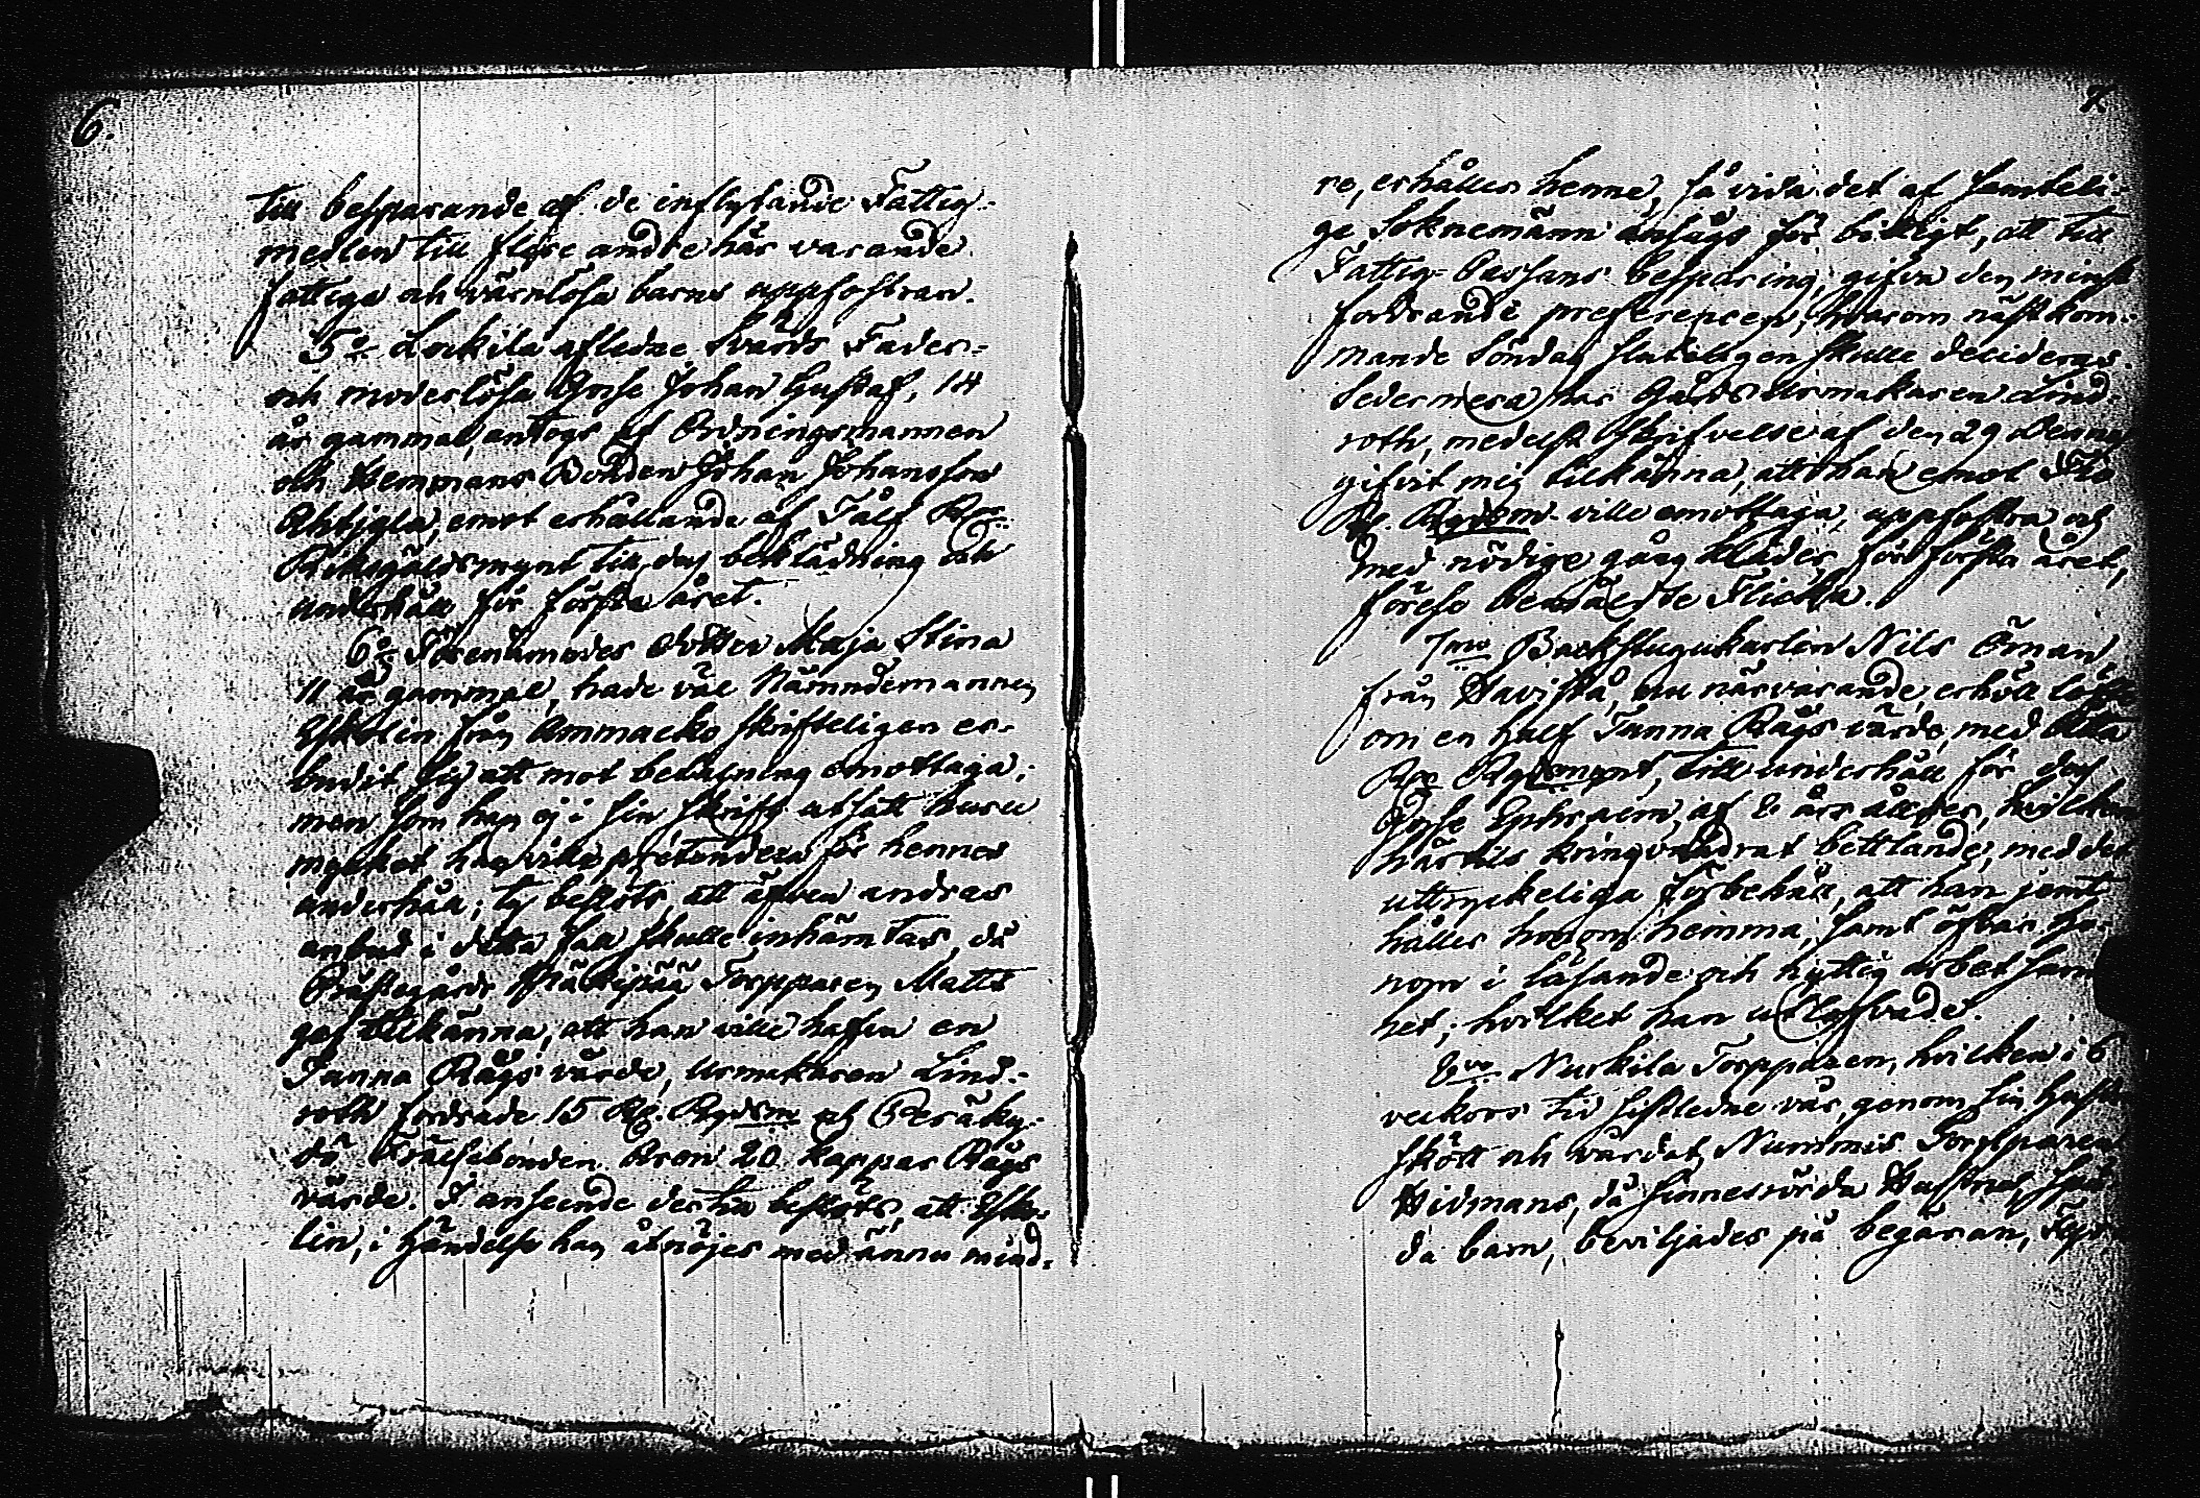 6.
till besparande af de inflytande Fattig-
medlen till flere andre här varande
fattiga och värnlösa barns uppfostran.
5o Lockila aflidne Svärds Fader-
och moderlösa Gosse Johan Gustaf, 14
år gammal, antogs af Ordningsmannen
och Hemmans Bonden Johan Johansson
Ahtiala, emot erhållande af Tålf Rdr
Riksgäldsmynt till dess beklädning och
underhåll för första året.
6o Förenämndes dotter Maja Stina
11 år gammal, hade väl Nämndemannen
Eskolin från Ammacko skrifteligen er-
budit sig att mot betalning emottaga;
men som han ej i sin skrift utsatt huru
mycket han ville prætendera för hennes
underhåll; ty beslöts att äfven andras
anbud i detta fall skulle inhämtas, då
Prästegårds Torpparen Matts
gaf tillkänna, att han ville hafva en
Tunna Rågs värde, Urmakaren Lind-
roth fordrade 15 Rd. Rgdsm och Peräky-
lä Frälsebonden Aron 20 kappar Rågs
värde. I anseende dertill beslöts, att Esko-
lin, i händelse han åtnöjes med ännu mind-
7.
re, erhåller henne, så vida det af samteli-
ge Soknemänn ansågs för billigt, att till
Fattig-Cassans besparing, gifva den minst
fordrande preferencen, hvarom nästkom-
mande Söndag sluteligen skulle decideras.
Sedermera har Gårds Urmakaren Lind-
roth, medelst skrifvelse af den 29 Dennes
gifvit mig tillkänna, att han emot Tio
Rd. Rgdsm ville emottaga, uppfostra och
med nödige gång kläder, för första året,
förese bemälte Flicka.
7mo Backstugukarlen Nils Öman
från Havista, nu närvarande, erhöll löfte
om en half Tunna Rågs värde, med Åtta
Rdr Rgdsmynt, till underhåll för dess
Gosse Ephraim, af 8 års ålder, hvilken
härtils kringvandrat bettlande, med det
uttryckeliga förbehåll, att han jemt
håller honom hemma, samt öfvar ho-
nom i läsande och nyttig arbetsam-
het; hvilket han utlofvade.
8vo Nurkila Torpparen, hvilken i 6
veckors tid sistledne vår, genom sin Hustru
skött och vårdat Nummis Torpparen
Hidmans, då sinnesrörda Hustrus, spä-
da barn, beviljades på begäran,